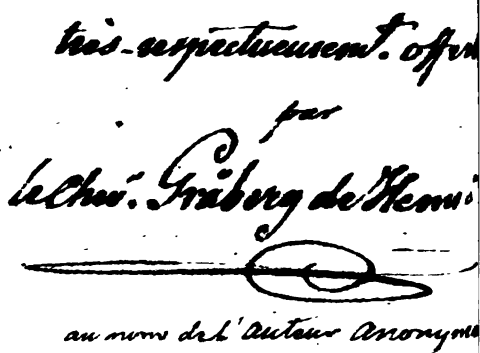 très-respectueusemt. offert
par
le Chev. Gråberg de Hemsö
au nom de l'Auteur Anonyme